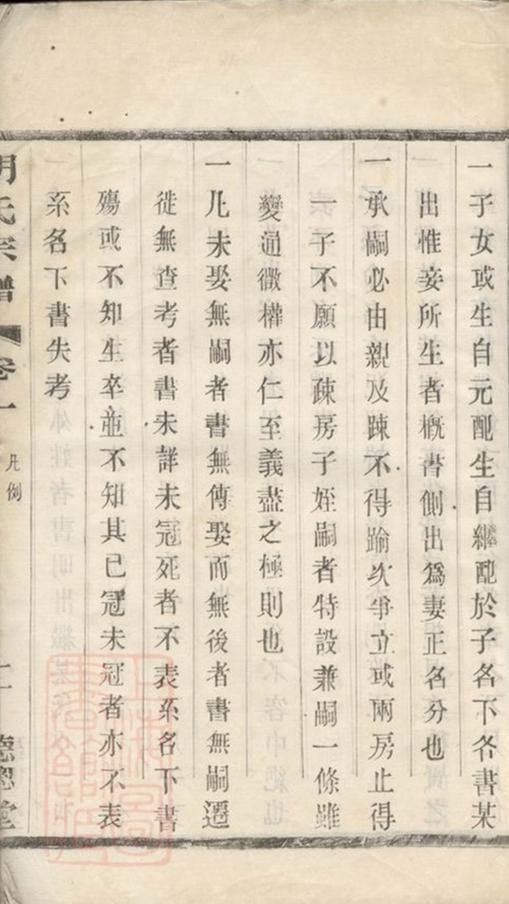 一子女或生自元配生自繼配於子名下各書某
出惟妾所生者概書側出爲妻正名分也
一承嗣必由親及踈不得踰次爭立或兩房止得
一子不願以踈房子姪嗣者特設兼嗣一條雖
變通微權亦仁至義盡之極則也
一凡未娶無嗣者書無傳娶而無後者書無嗣遷
徙無查考者書未詳未冠死者不表系名下書
殤或不知生卒並不知其已冠未冠者亦不表
系名下書失考
氏宗譜 卷一 凡例